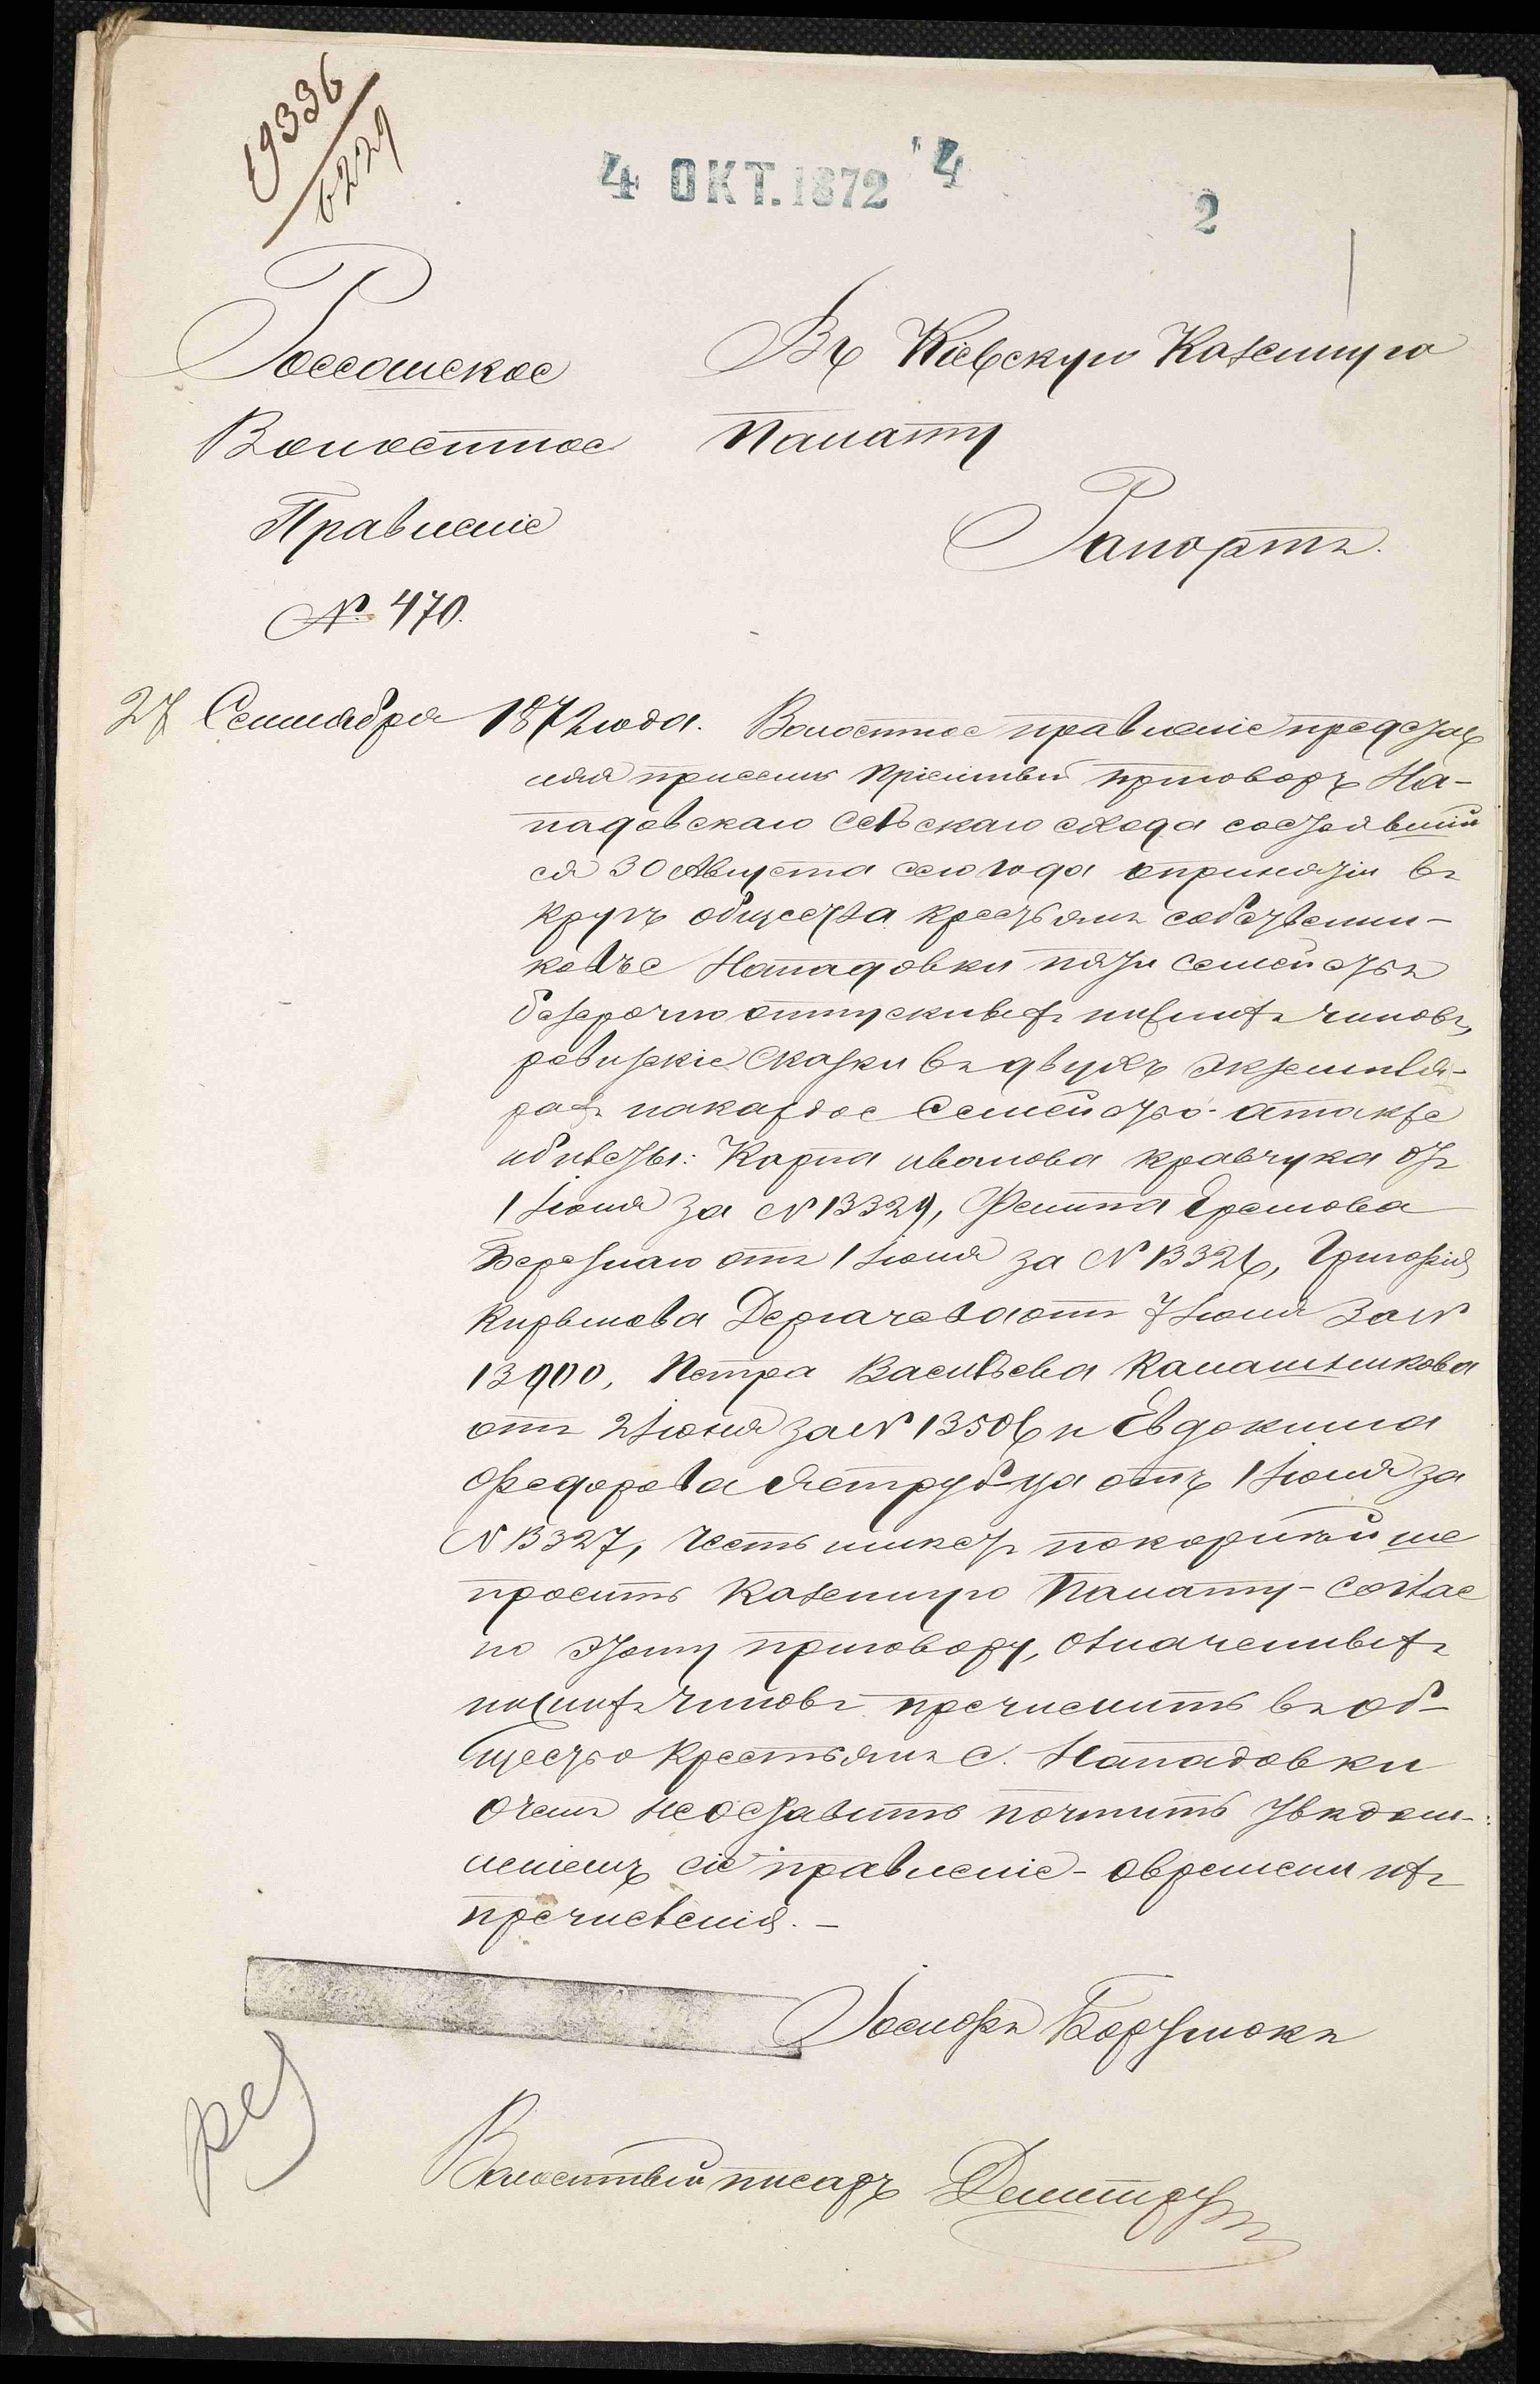 19336
6229
4 ОКТ. 1872 4
2
Россошское
Волостное
Правленіе
№ 470.
Въ Кіевскую Казенную
Палату
Рапортъ.
27 Сентября 1872 года. Волостное правленіе представ
ляя присемъ пріемный приговоръ На-
падовскаго сельскаго схода состоявший
ся 30 Августа сего года опринятіи въ
кругъ общества крестьянъ собственни-
ковъ с Нападовки пяти семействъ
безсрочно отпускныхъ нижнихъ чиновъ,
ревизскіе сказки въ двухъ экземпля-
рахъ накаждое семейство - атакже
ибилеты: Карпа иванова кравчука отъ
1 Іюня за № 13329, Филипа Еремова
Березнаго отъ 1 Іюня за № 13326, Григорія
Кирылова Дергачева отъ 7 Іюня за №
13900, Петра Васильева Калашникова
отъ 2 Іюня за № 13506 и Евдокима
Федорова Ястребца отъ 1 Іюня за
№ 13327, честь имѣетъ покорнѣйше
просить Казенную Палату - соглас
но этому приговору, означенныхъ
нижнихъ чиновъ пречислить въ об-
щество Крестьянъ с. Нападовки
очемъ неоставить почтить увѣдом-
леніемъ сіе правленіе - овремени ихъ
пречисленія. -
Іосифъ
Волостный писарь
рез